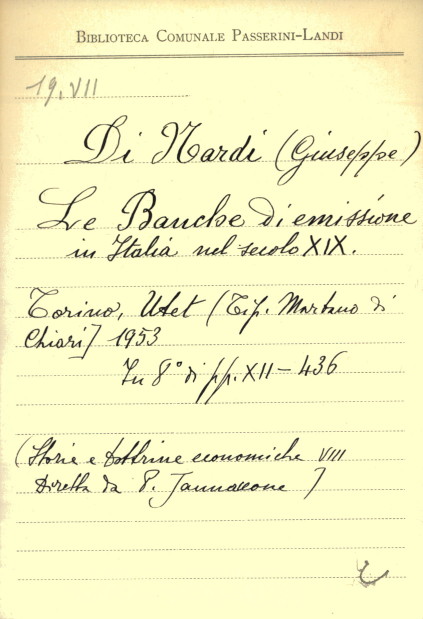 BIBLIOTECA COMUNALE PASSERINI-LANDI
19.VII
Di Nardi (Giuseppe)
Le Banche di emissione
in Italia nel secolo XIX.
Torino, Utet (Tip. Marbano di
Chiari] 1953
In 8° di pp. XII - 436
(Storie e Dottrine economiche VIII
Diretta da P. Jannaccone ]